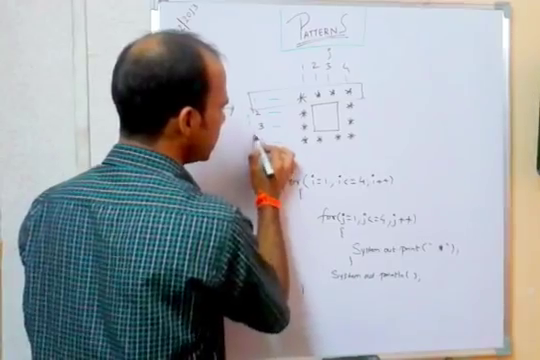 PATTERNS
j
1 2 3 4
* * * *
2 * *
3 * *
* * * *
(i=1, i<=4, i++)
{
for(j=1, j<=4, j++)
{
System.out.print("*"),
}
System.out.println(),
}